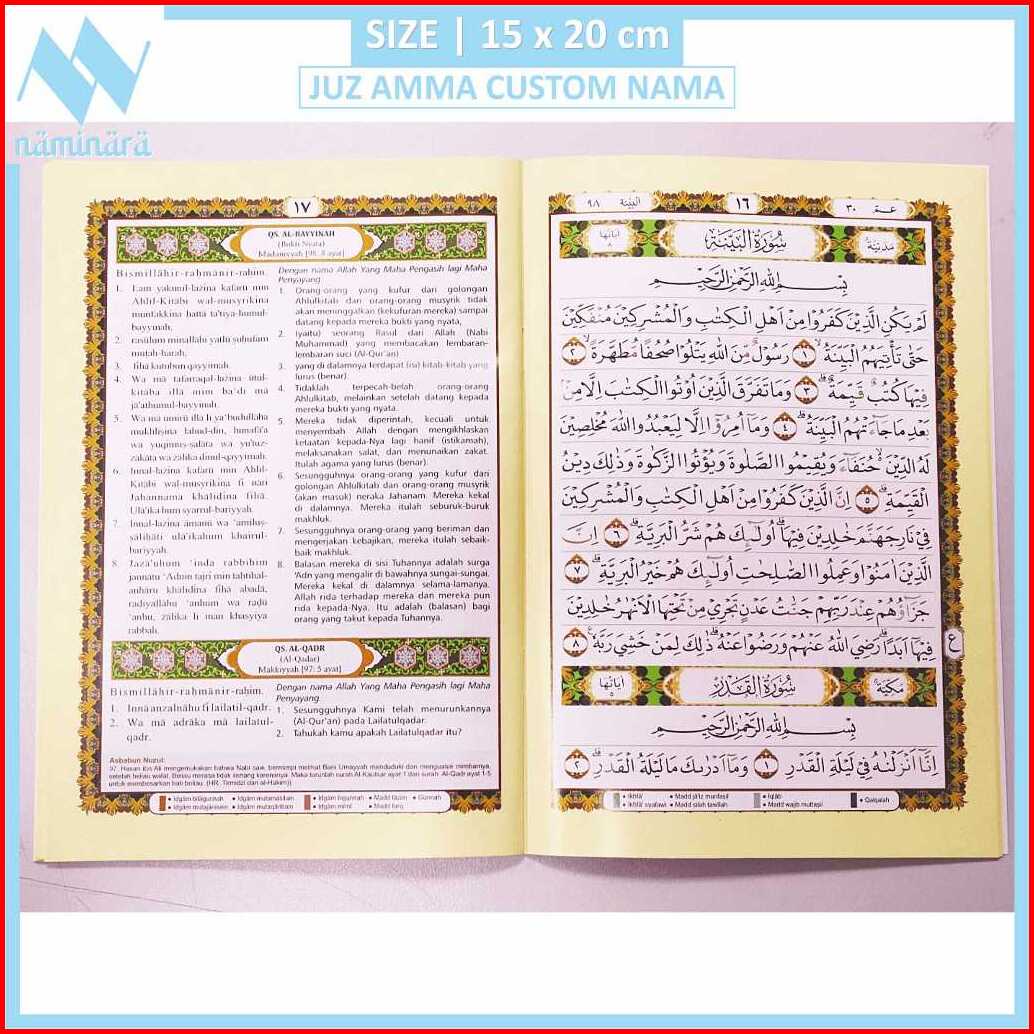 SIZE | 15 x 20 cm
JUZ AMMA CUSTOM NAMA
näminärä
١٧
QS. AL-BAYYINAH
(Bukti Nyata)
Madaniyyah [98: 8 ayat]
Bismillāhir-raḥmānir-raḥīm.
1. Lam yakunil-lażīna kafarū min
Ahlil-Kitābi wal-musyrikīna
munfakkīna ḥattā ta'tiya-humul-
bayyinah,
2. rasūlum minallāhi yatlū ṣuḥufām
muṭah-harah,
3. fīhā kutubun qayyimah.
4. Wa mā tafarraqal-lażīna ūtul-
kitāba illā mim ba'di mā
jā'athumul-bayyinah.
5. Wa mā umirū illā li ya'budullāha
mukhliṣīna lahud-dīn, ḥunafā'a
wa yuqīmuṣ-ṣalāta wa yu'tuz-
zakāta wa żālika dīnul-qayyimah.
6. Innal-lażīna kafarū min Ahlil-
Kitābi wal-musyrikīna fī nāri
Jahannama khālidīna fīhā.
Ulā'ika hum syarrul-bariyyah.
7. Innal-lażīna āmanū wa 'amiluṣ-
ṣāliḥāti ulā'ika hum khairul-
bariyyah.
8. Jazā'uhum 'inda rabbihim
jannātu 'Adnin tajrī min taḥtihal-
anhāru khālidīna fīhā abadā,
raḍiyallāhu 'anhum wa raḍū
'anhu, żālika li man khasyiya
rabbah.
Dengan nama Allah Yang Maha Pengasih lagi Maha
Penyayang
1. Orang-orang yang kufur dari golongan
Ahlulkitab dan orang-orang musyrik tidak
akan meninggalkan (kekufuran mereka) sampai
datang kepada mereka bukti yang nyata,
2. (yaitu) seorang Rasul dari Allah (Nabi
Muhammad) yang membacakan lembaran-
lembaran suci (Al-Qur'an)
3. yang di dalamnya terdapat (isi) kitab-kitab yang
lurus (benar).
4. Tidaklah terpecah-belah orang-orang
Ahlulkitab, melainkan setelah datang kepada
mereka bukti yang nyata.
5. Mereka tidak diperintah, kecuali untuk
menyembah Allah dengan mengikhlaskan
ketaatan kepada-Nya lagi hanif (istikamah),
melaksanakan salat, dan menunaikan zakat.
Itulah agama yang lurus (benar).
6. Sesungguhnya orang-orang yang kufur dari
golongan Ahlulkitab dan orang-orang musyrik
(akan masuk) neraka Jahanam. Mereka kekal
di dalamnya. Mereka itulah seburuk-buruk
makhluk.
7. Sesungguhnya orang-orang yang beriman dan
mengerjakan kebajikan, mereka itulah sebaik-
baik makhluk.
8. Balasan mereka di sisi Tuhannya adalah surga
'Adn yang mengalir di bawahnya sungai-sungai.
Mereka kekal di dalamnya selama-lamanya.
Allah rida terhadap mereka dan mereka pun
rida kepada-Nya. Itu adalah (balasan) bagi
orang yang takut kepada Tuhannya.
QS. AL-QADR
(Al-Qadar)
Makkiyyah [97: 5 ayat]
Bismillāhir-raḥmānir-raḥīm.
1. Innā anzalnāhu fī lailatil-qadr.
2. Wa mā adrāka mā lailatul-
qadr.
Dengan nama Allah Yang Maha Pengasih lagi Maha
Penyayang
1. Sesungguhnya Kami telah menurunkannya
(Al-Qur'an) pada Lailatulqadar.
2. Tahukah kamu apakah Lailatulqadar itu?
Asbabun Nuzul:
97. Hasan ibn Ali mengemukakan bahwa Nabi saw. bermimpi melihat Bani Umayyah menduduki dan menguasai mimbarnya,
setelah beliau wafat. Beliau merasa tidak senang karenanya. Maka turunlah surah Al-Kautsar ayat 1 dan surah Al-Qadr ayat 1-5
untuk membesarkan hati beliau. (HR. Tirmidzi dan al-Hakim)
عمّ ٣٠
١٦
البينة ٩٨
مدنية
سُورَةُ الْبَيِّنَةِ
آيَاتُهَا ٨
بِسْمِ اللّٰهِ الرَّحْمٰنِ الرَّحِيْمِ
لَمْ يَكُنِ الَّذِيْنَ كَفَرُوْا مِنْ اَهْلِ الْكِتٰبِ وَالْمُشْرِكِيْنَ مُنْفَكِّيْنَ
حَتّٰى تَأْتِيَهُمُ الْبَيِّنَةُۙ ١ رَسُوْلٌ مِّنَ اللّٰهِ يَتْلُوْا صُحُفًا مُّطَهَّرَةًۙ ٢
فِيْهَا كُتُبٌ قَيِّمَةٌۗ ٣ وَمَا تَفَرَّقَ الَّذِيْنَ اُوْتُوا الْكِتٰبَ اِلَّا مِنْۢ
بَعْدِ مَا جَاۤءَتْهُمُ الْبَيِّنَةُۗ ٤ وَمَآ اُمِرُوْٓا اِلَّا لِيَعْبُدُوا اللّٰهَ مُخْلِصِيْنَ
لَهُ الدِّيْنَ ەۙ حُنَفَاۤءَ وَيُقِيْمُوا الصَّلٰوةَ وَيُؤْتُوا الزَّكٰوةَ وَذٰلِكَ دِيْنُ
الْقَيِّمَةِۗ ٥ اِنَّ الَّذِيْنَ كَفَرُوْا مِنْ اَهْلِ الْكِتٰبِ وَالْمُشْرِكِيْنَ
فِيْ نَارِ جَهَنَّمَ خٰلِدِيْنَ فِيْهَاۗ اُولٰۤىِٕكَ هُمْ شَرُّ الْبَرِيَّةِۗ ٦ اِنَّ
الَّذِيْنَ اٰمَنُوْا وَعَمِلُوا الصّٰلِحٰتِ اُولٰۤىِٕكَ هُمْ خَيْرُ الْبَرِيَّةِۗ ٧
جَزَاۤؤُهُمْ عِنْدَ رَبِّهِمْ جَنّٰتُ عَدْنٍ تَجْرِيْ مِنْ تَحْتِهَا الْاَنْهٰرُ خٰلِدِيْنَ
فِيْهَآ اَبَدًاۗ رَضِيَ اللّٰهُ عَنْهُمْ وَرَضُوْا عَنْهُۗ ذٰلِكَ لِمَنْ خَشِيَ رَبَّهٗ ٨
ع
مكية
سُورَةُ الْقَدْرِ
آيَاتُهَا ٥
بِسْمِ اللّٰهِ الرَّحْمٰنِ الرَّحِيْمِ
اِنَّآ اَنْزَلْنٰهُ فِيْ لَيْلَةِ الْقَدْرِ ١ وَمَآ اَدْرٰىكَ مَا لَيْلَةُ الْقَدْرِۗ ٢